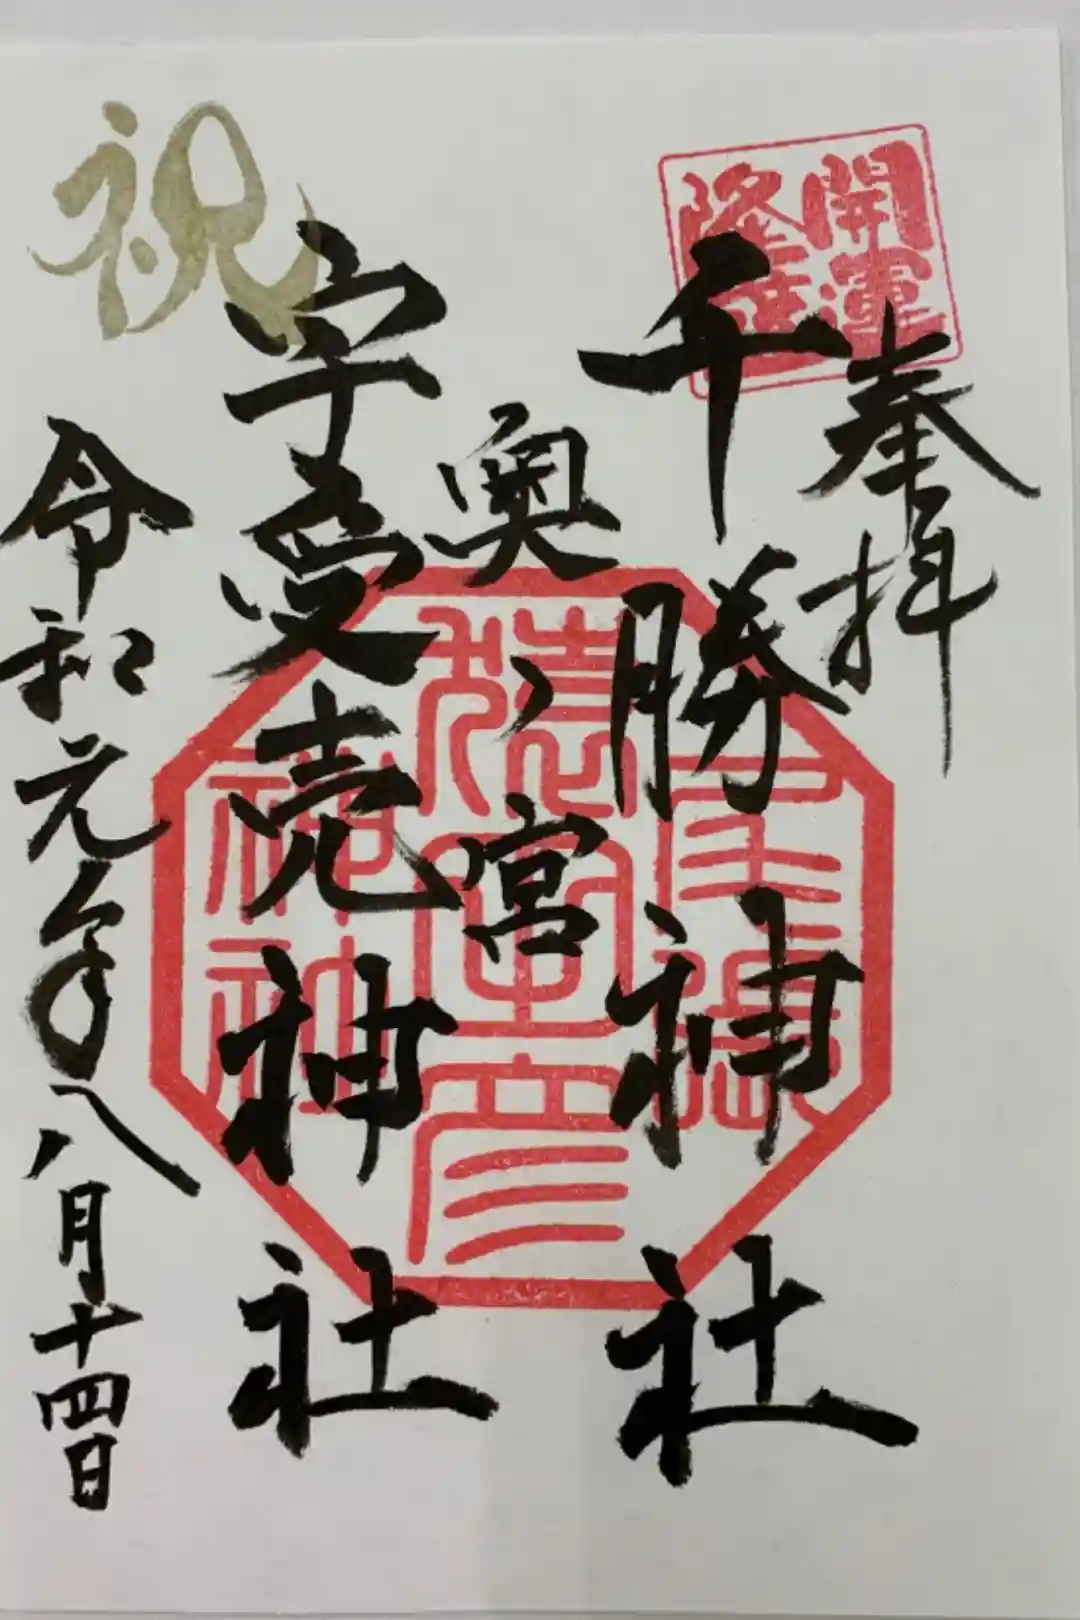 開運
奉拝
千勝神社
奥ノ宮
宇受売神社
祝
令和元年八月十四日